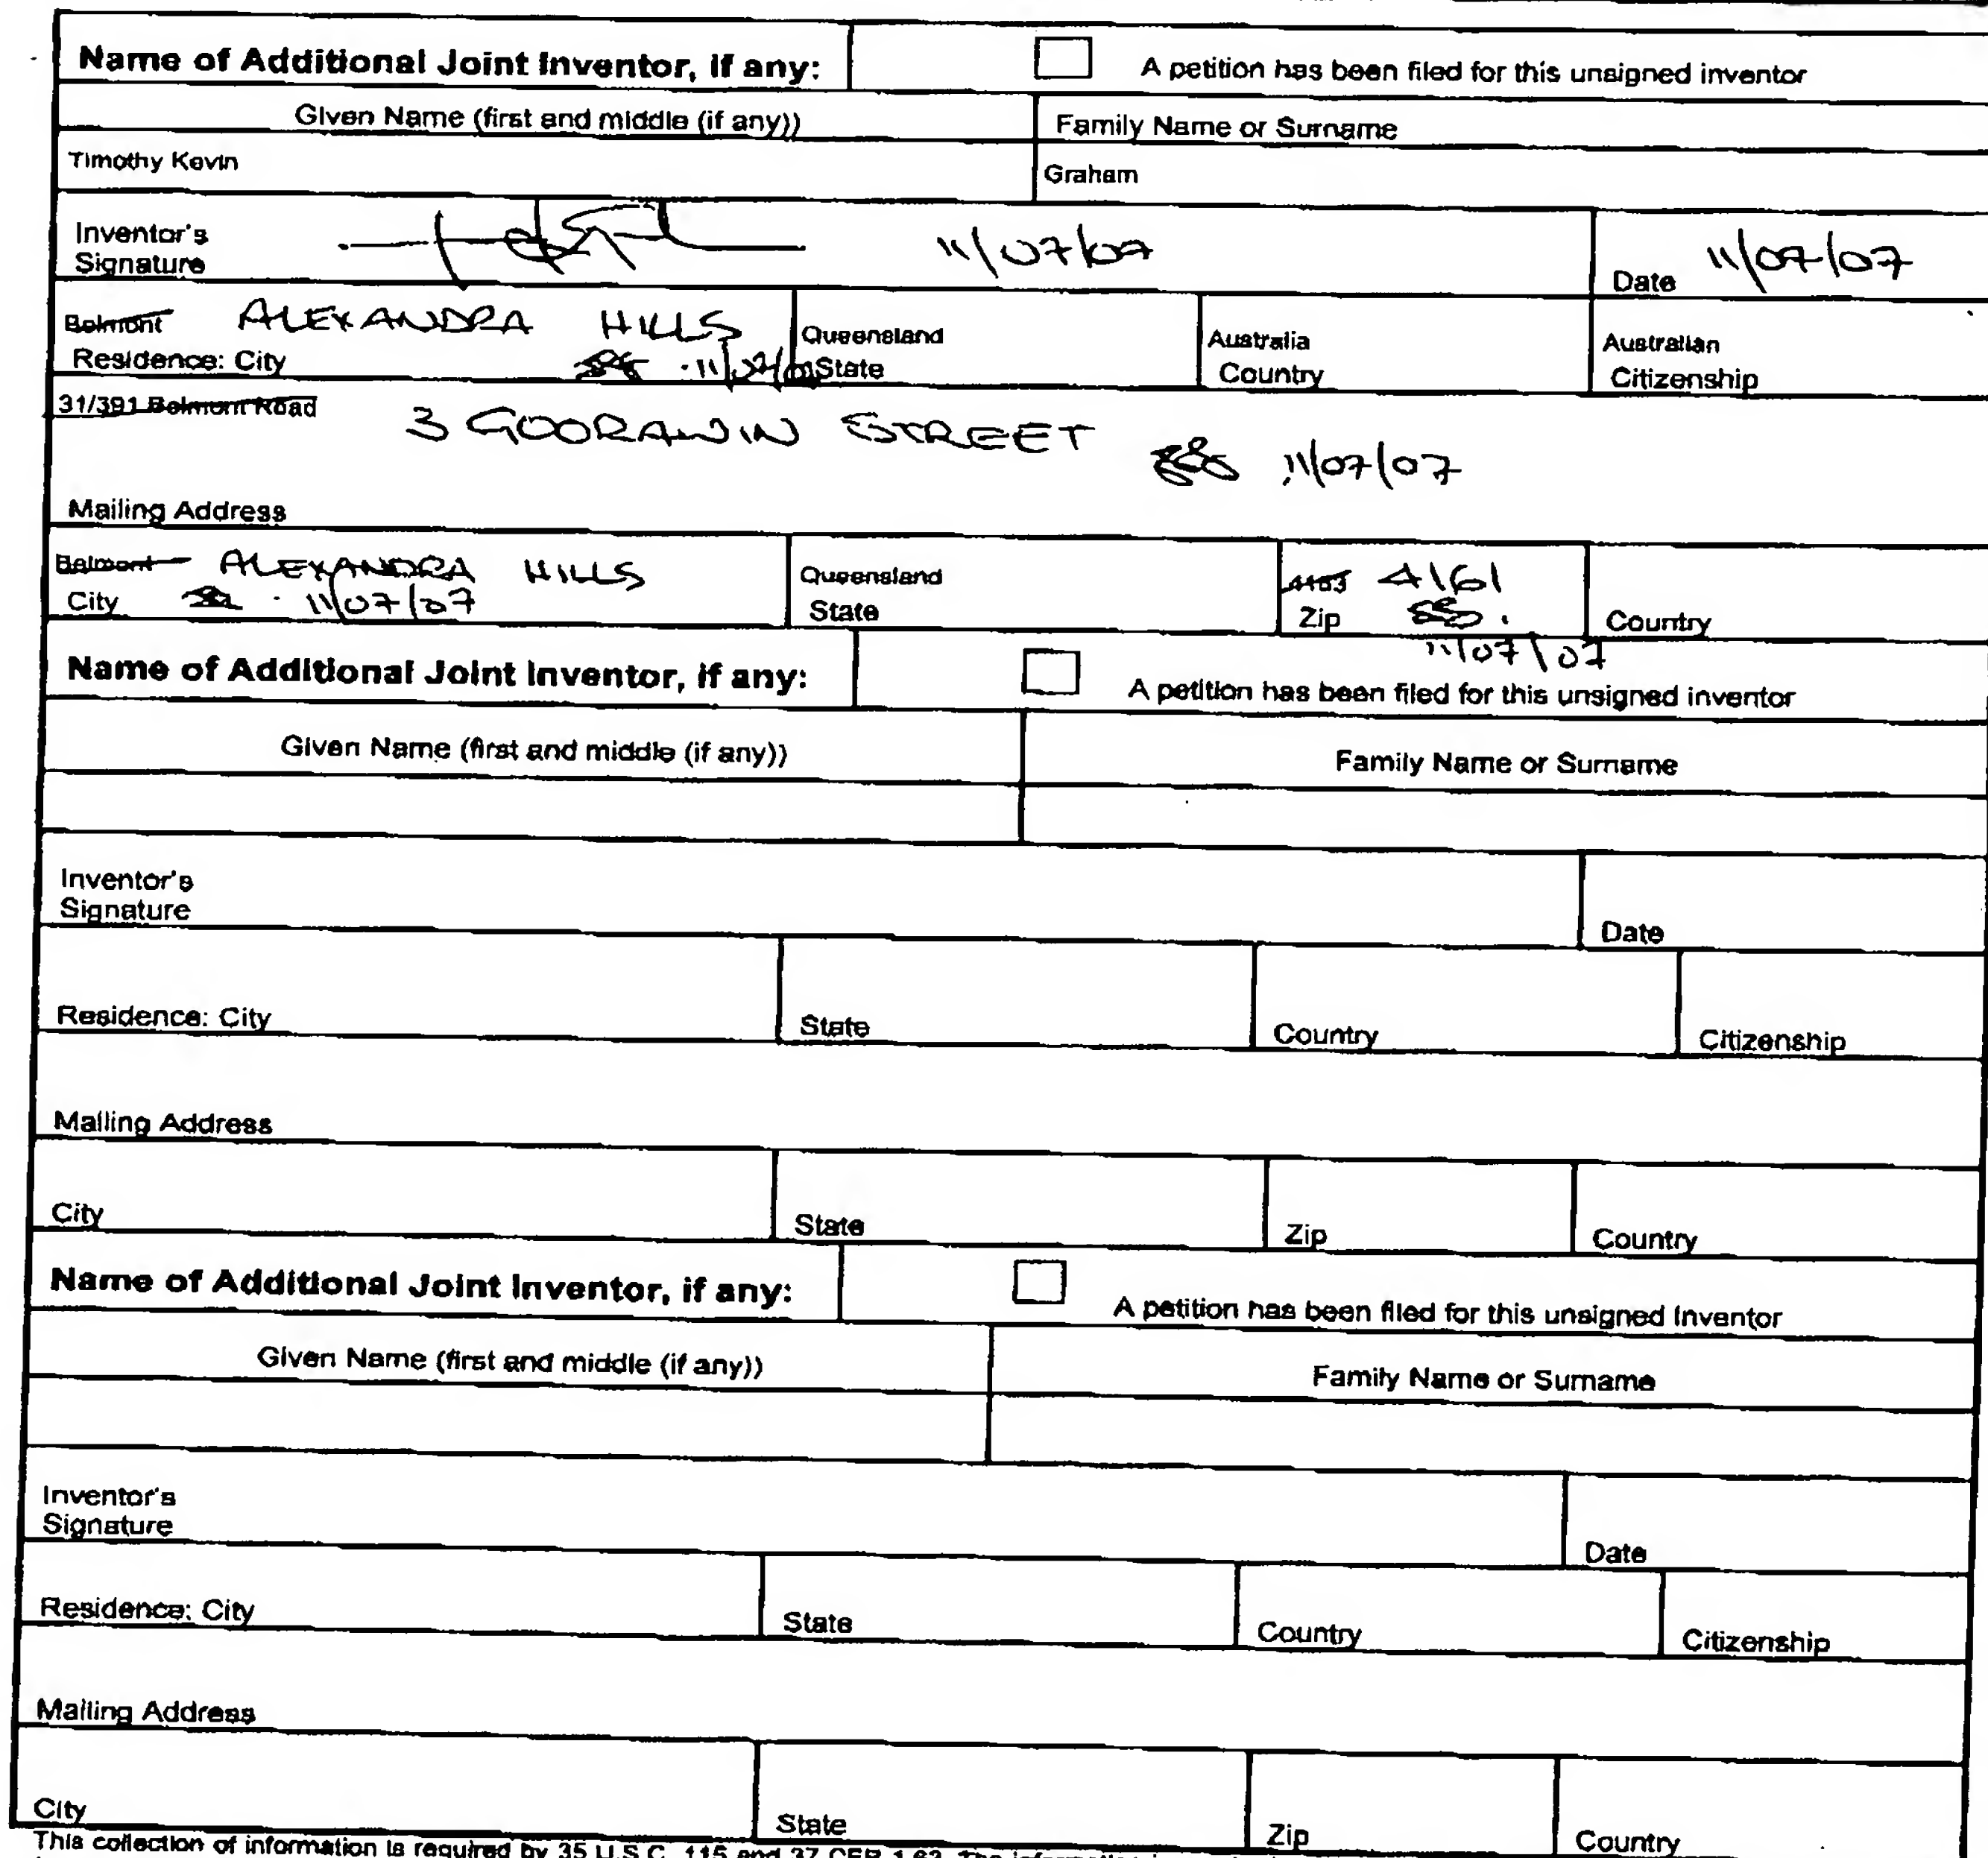 Name of Additional Joint Inventor, if any:
A petition has been filed for this unsigned inventor
Given Name (first and middle (if any))
Family Name or Surname
Timothy Kevin
Graham
Inventor's
Signature
11/07/07
Date 11/07/07
Belmont ALEXANDRA HILLS
Residence: City
11/07/07
Queensland
State
Australia
Country
Australian
Citizenship
31/391 Belmont Road
3 GOORAWIN STREET
11/07/07
Mailing Address
Belmont ALEXANDRA HILLS
City 11/07/07
Queensland
State
4153 4161
Zip
11/07/07
Country
Name of Additional Joint Inventor, if any:
A petition has been filed for this unsigned inventor
Given Name (first and middle (if any))
Family Name or Surname
Inventor's
Signature
Date
Residence: City
State
Country
Citizenship
Mailing Address
City
State
Zip
Country
Name of Additional Joint Inventor, if any:
A petition has been filed for this unsigned Inventor
Given Name (first and middle (if any))
Family Name or Surname
Inventor's
Signature
Date
Residence: City
State
Country
Citizenship
Mailing Address
City
State
Zip
Country
This collection of information is required by 35 U.S.C. 115 and 37 CFR 1.63. The information